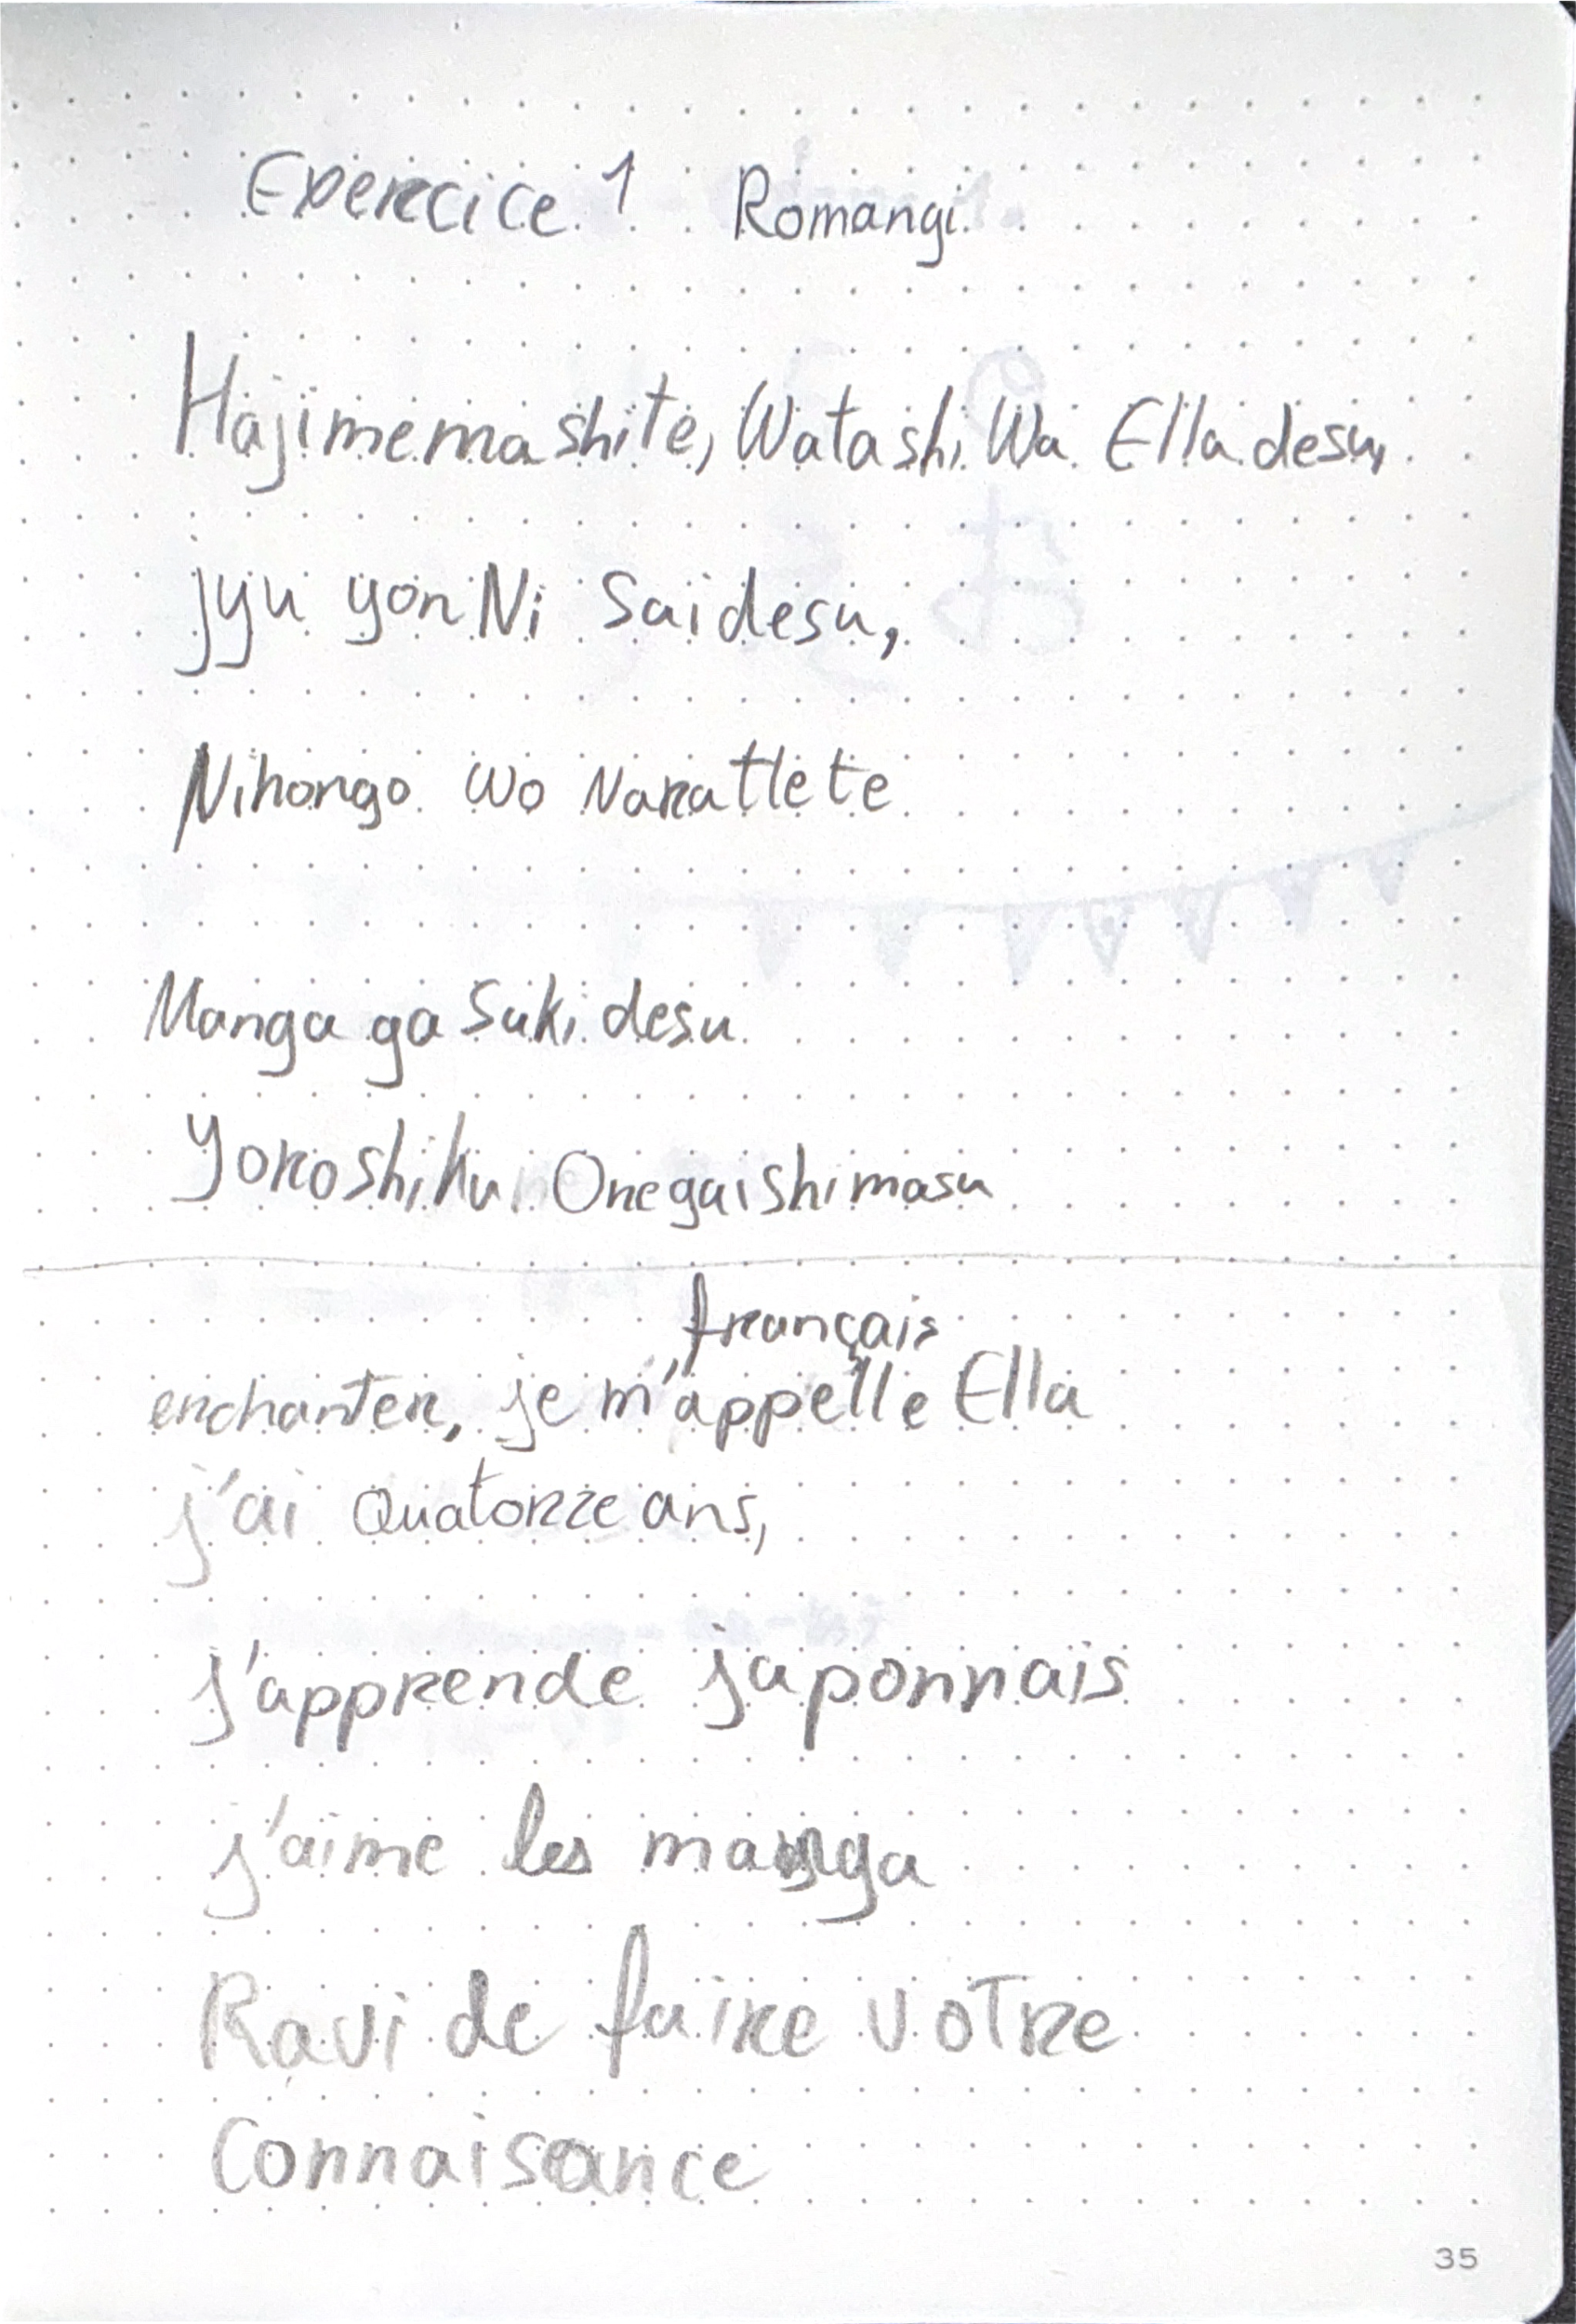 Exercice 1 Romangi
Hajimemashite, Watashi Wa Ella desu,
jyu yon Ni Sai desu,
Nihongo wo Narattete
Manga ga Suki desu
Yoroshiku Onegaishimasu
français
enchanter, je m'appelle Ella
j'ai Quatorze ans,
j'apprende japonnais
j'aime les manga
Ravi de faire votre
Connaisance
35